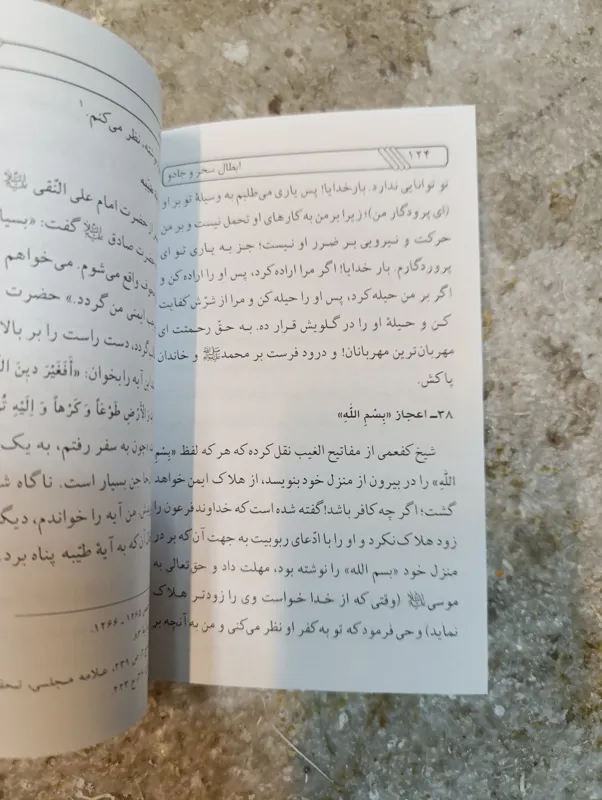 ۱۲۴
ابطال سحر و جادو
تو توانایی ندارد. بارخدایا! پس یاری می‌طلبم به وسیلهٔ تو بر او
(ای پرودگار من)؛ زیرا بر من به کارهای او تحمل نیست و بر من
حرکت و نیرویی بر ضرر او نیست؛ جز به یاری تو ای
پروردگارم. بار خدایا! اگر مرا اراده کرد، پس او را اراده کن و
اگر بر من حیله کرد، پس او را حیله کن و مرا از شرّش کفایت
کن و حیلهٔ او را در گلویش قرار ده. به حقّ رحمتت ای
مهربان‌ترین مهربانان! و درود فرست بر محمدﷺ و خاندان
پاکش.
۳۸ـ اعجاز «بِسْمِ اللهِ»
شیخ کفعمی از مفاتیح الغیب نقل کرده که هر که لفظ «بِسْمِ
اللهِ» را در بیرون از منزل خود بنویسد، از هلاک ایمن خواهد
گشت؛ اگر چه کافر باشد! گفته شده است که خداوند فرعون را
زود هلاک نکرد و او را با ادّعای ربوبیت به جهت آن که بر در
منزل خود «بسم الله» را نوشته بود، مهلت داد و حق‌تعالی به
موسی (وقتی که از خدا خواست وی را زودتر هلاک
نماید) وحی فرمود که تو به کفر او نظر می‌کنی و من به آنچه بر
نظر می‌کنم.۱
حضرت امام علی النّقی
حضرت صادق گفت: «بسیا
واقع می‌شوم. می‌خواهم
ایمنی من گردد.» حضرت
گردد، دست راست را بر بالا
این آیه را بخوان: «أَفَغَیْرَ دینَ ال
الْأَرْضِ طَوْعَاً وَ کَرْهَاً وَ اِلَیْهِ تُ
چون به سفر رفتم، به یک
جن بسیار است. ناگاه ش
من آیه را خواندم، دیگ
آن که به آیهٔ طیّبه پناه برد.
۱۲۶۵ ـ ۱۲۶۶.
ص ۲۳۹، علامه مجلسی، تحف
ج ۲۲۳